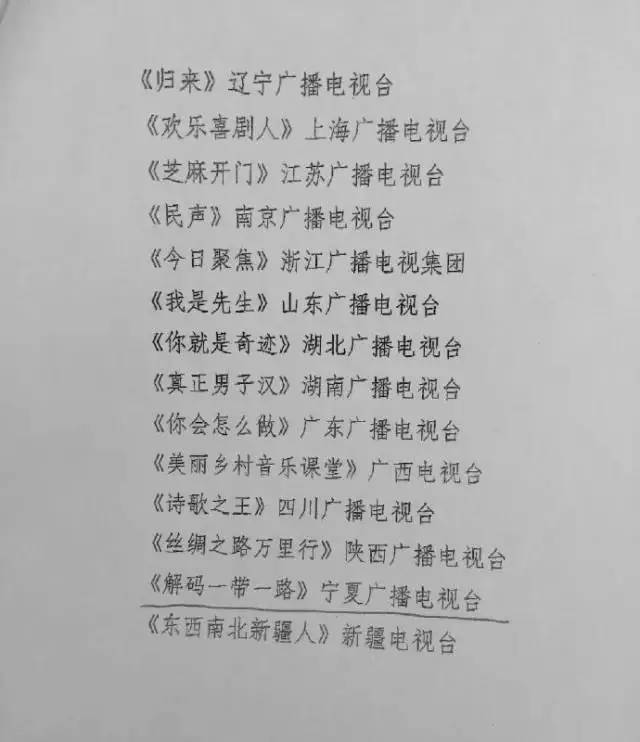 《归来》辽宁广播电视台
《欢乐喜剧人》上海广播电视台
《芝麻开门》江苏广播电视台
《民声》南京广播电视台
《今日聚焦》浙江广播电视集团
《我是先生》山东广播电视台
《你就是奇迹》湖北广播电视台
《真正男子汉》湖南广播电视台
《你会怎么做》广东广播电视台
《美丽乡村音乐课堂》广西电视台
《诗歌之王》四川广播电视台
《丝绸之路万里行》陕西广播电视台
《解码一带一路》宁夏广播电视台
《东西南北新疆人》新疆电视台